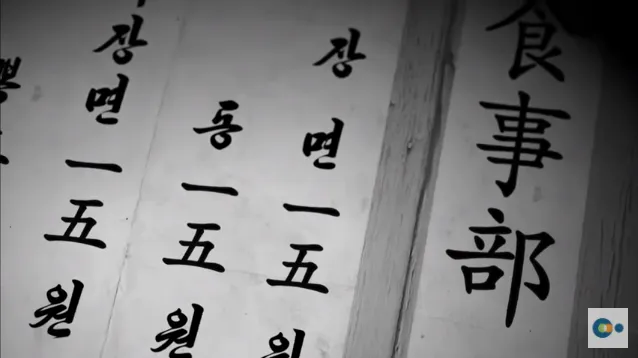 食事部
장면一五원
동一五원
장면一五원